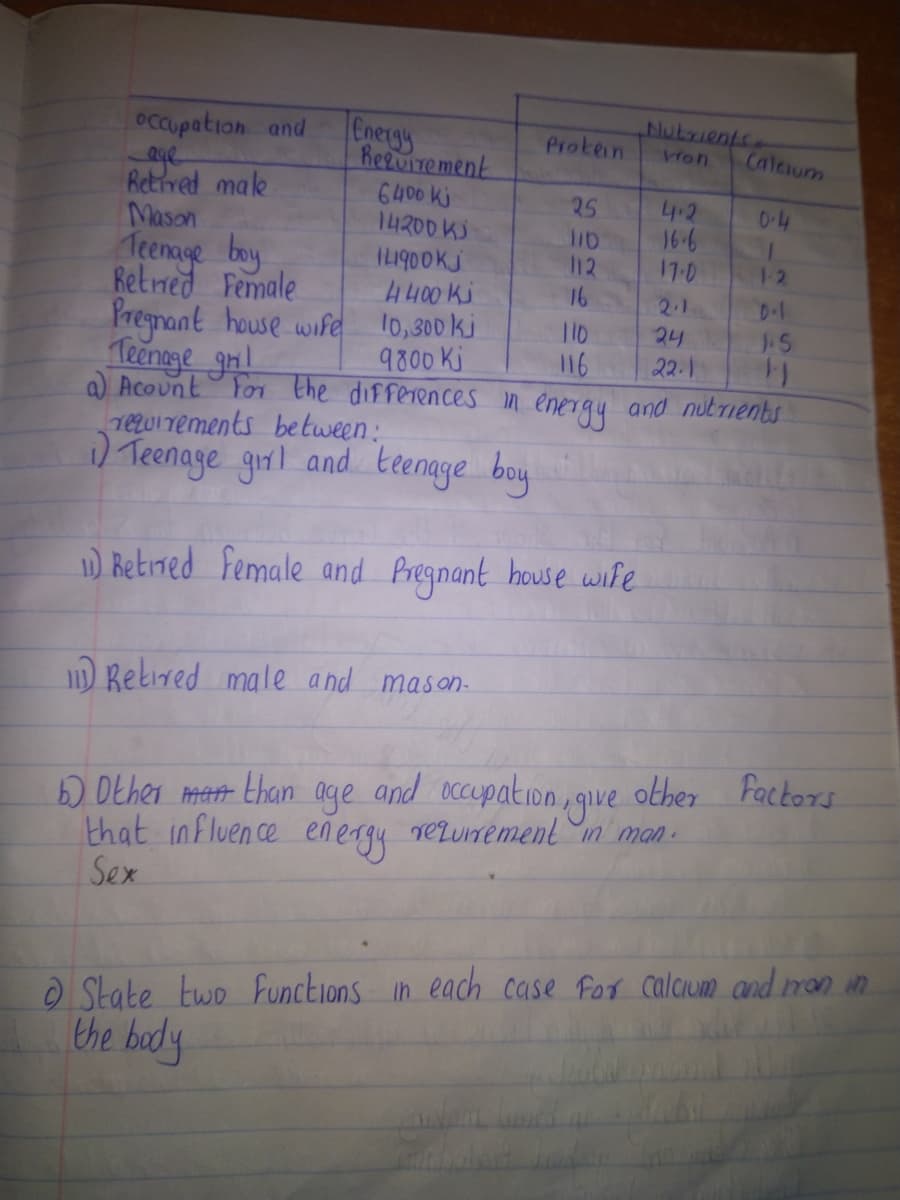 Nutrients
occupation and Energy Protein iron Calcium
age Requirement
Retired male 6400 Kj 25 4.2 0.4
Mason 14200 KJ 110 16.6 1
Teenage boy 14900KJ 112 17.0 1.2
Retired Female 4400 Kj 16 2.1 0.1
Pregnant house wife 10,300 Kj 110 24 1.5
Teenage girl 9800 Kj 116 22.1 1.1
a) Acount For the differences in energy and nutrients
requirements between:
i) Teenage girl and teenage boy
ii) Retired Female and Pregnant house wife
iii) Retired male and mason.
b) Other man than age and occupation, give other Factors
that influence energy requirement in man.
Sex
c) State two Functions in each case For calcium and iron in
the body